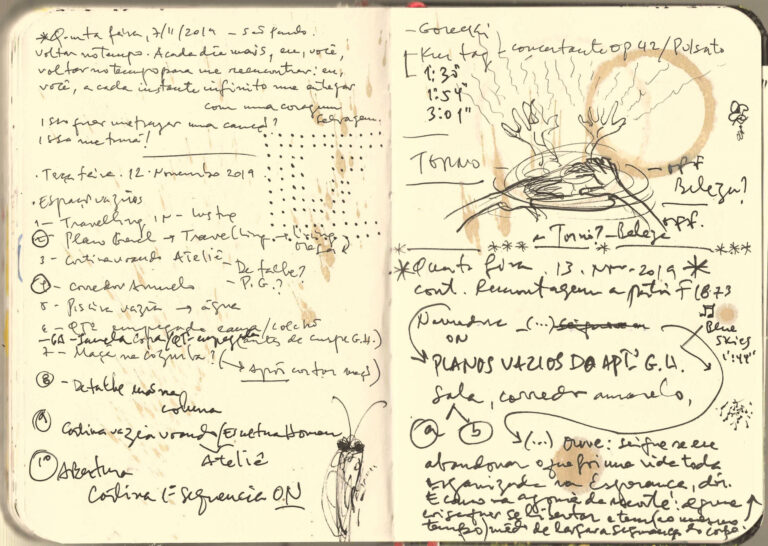 * Quinta feira, 7/11/2019 – São Paulo.
voltar no tempo. A cada dia mais, eu, você,
voltar no tempo para me reencontrar: eu,
você, a cada instante infinito me
com uma coragem
selvagem.
Isso quer me trazer uma canção?
Isso me
. Terça feira. 12. Novembro 2019
. Espaços vazios
1 – Travelling IN – lustre
2 – Plano Geral → Travelling →
3 – Cortina voando Ateliê
4 – corredor Amarelo
– Detalhe?
P.G.?
5 – Piscina vazia → água
6 – QTO empregada cama/colchão
– 6A – Janela Copa/QT. empregada (antes de G.H.)
7 – Maçã na cozinha?
(→ Após cortar maçã)
8 – Detalhe
coluna
9 Cortina vazia voando/Escultura Homem
Ateliê
10 Abertura
Cortina 1ª sequencia ON
– Gorecki
– Kurtag – concertante OP 42 / Pulsato
1'30"
1'54"
3:01"
TORNO
– off
Beleza?
off.
– Torno? – Beleza
* Quarta feira, 13. Nov – 2019 *
cont. Remontagem a partir F 1873
Narradora – (...)
ON
Blue
Skies
1'44"
PLANOS VAZIOS DO APTº G.H.
Sala, corredor amarelo,
a b
→ (...) ouve: sei que se eu
abandonar o que foi uma vida toda
organizada na Esperança,
E como na agonia da morte:
e tempo mesmo
tempo) medo de largar a segurança do corpo.